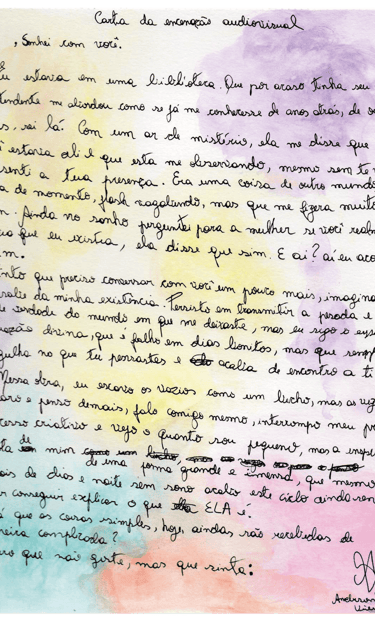 Carta da encenação audiovisual
, Sonhei com você.
Eu estaria em uma biblioteca. Que por acaso tinha seu
tendente me abordou como se já me conhecesse de anos atrás, de ou
s, sei lá. Com um ar de mistério, ela me disse que
estaria ali e que esta me observando, mesmo sem te v
senti a tua presença. Era uma coisa de outro mundo
a de momento, flash vagalundo, mas que me fizera muito
m. Ainda no sonho perguntei para a mulher se você real
que eu existia, ela disse que sim. E ai? ai eu aco
m.
into que preciso conversar com você um pouco mais, imagina
da minha existência. Persisto em transmitir a parada e
de verdade do mundo em que me deixaste, mas eu sigo o
divina, que é falho em dias bonitos, mas que semp
gulha no que tu pensastes e acalia de encontro a ti
Nessa obra, eu escavo os vazios como um bicho, mas as vez
aro e penso demais, falo comigo mesmo, interrompo meu p
cesso criativo e vejo o quanto sou pequeno, mas a
ta de mim
de uma forma grande e imensa, que mesmo
ois de dias e noite sem sono acabo este ciclo ainda sem
r conseguir explicar o que ELA é.
á que as coisas simples, hoje, aindas são recebidas de
neira complicada?
ero que não goste, mas que sinta:
Anderson